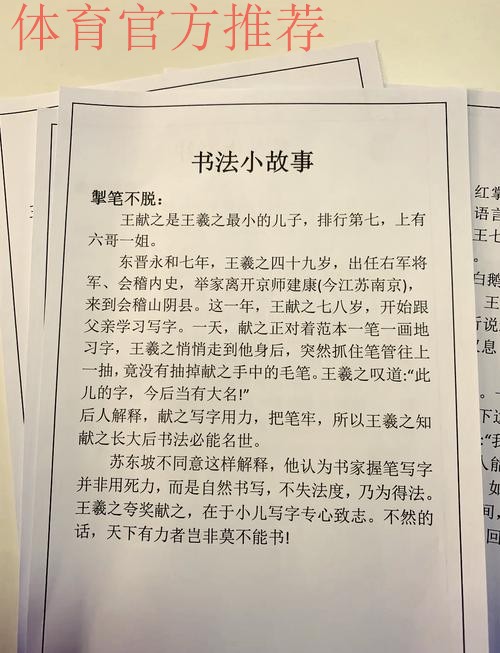 体育官方推荐
书法小故事
掣笔不脱：
王献之是王羲之最小的儿子，排行第七，上有
六哥一姐。
东晋永和七年，王羲之四十九岁，出任右军将
军、会稽内史，举家离开京师建康(今江苏南京)，
来到会稽山阴县。这一年，王献之七八岁，开始跟
父亲学习写字。一天，献之正对着范本一笔一画地
习字，王羲之悄悄走到他身后，突然抓住笔管往上
一抽，竟没有抽掉献之手中的毛笔。王羲之叹道:“此
儿的字，今后当有大名!”
后人解释，献之写字用力，把笔牢，所以王羲之知
献之长大后书法必能名世。
苏东坡不同意这样解释，他认为书家握笔写字
并非用死力，而是自然书写，不失法度，乃为得法。
王羲之夸奖献之，在于小儿写字专心致志。不然的
话，天下有力者岂非莫不能书!
红掌
语言
王七
。
白鹅
王
听说
叹息
。一
下这
:“我
人能
。如
间，
回